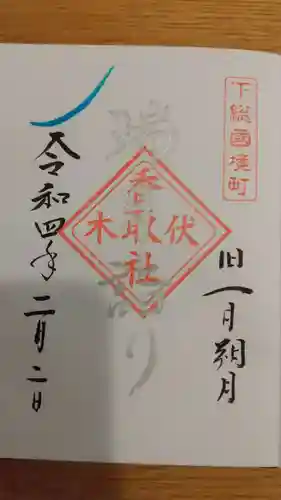 下総國境町
旧一月朔月
瑞詣り
伏木
香取社
令和四年二月二日